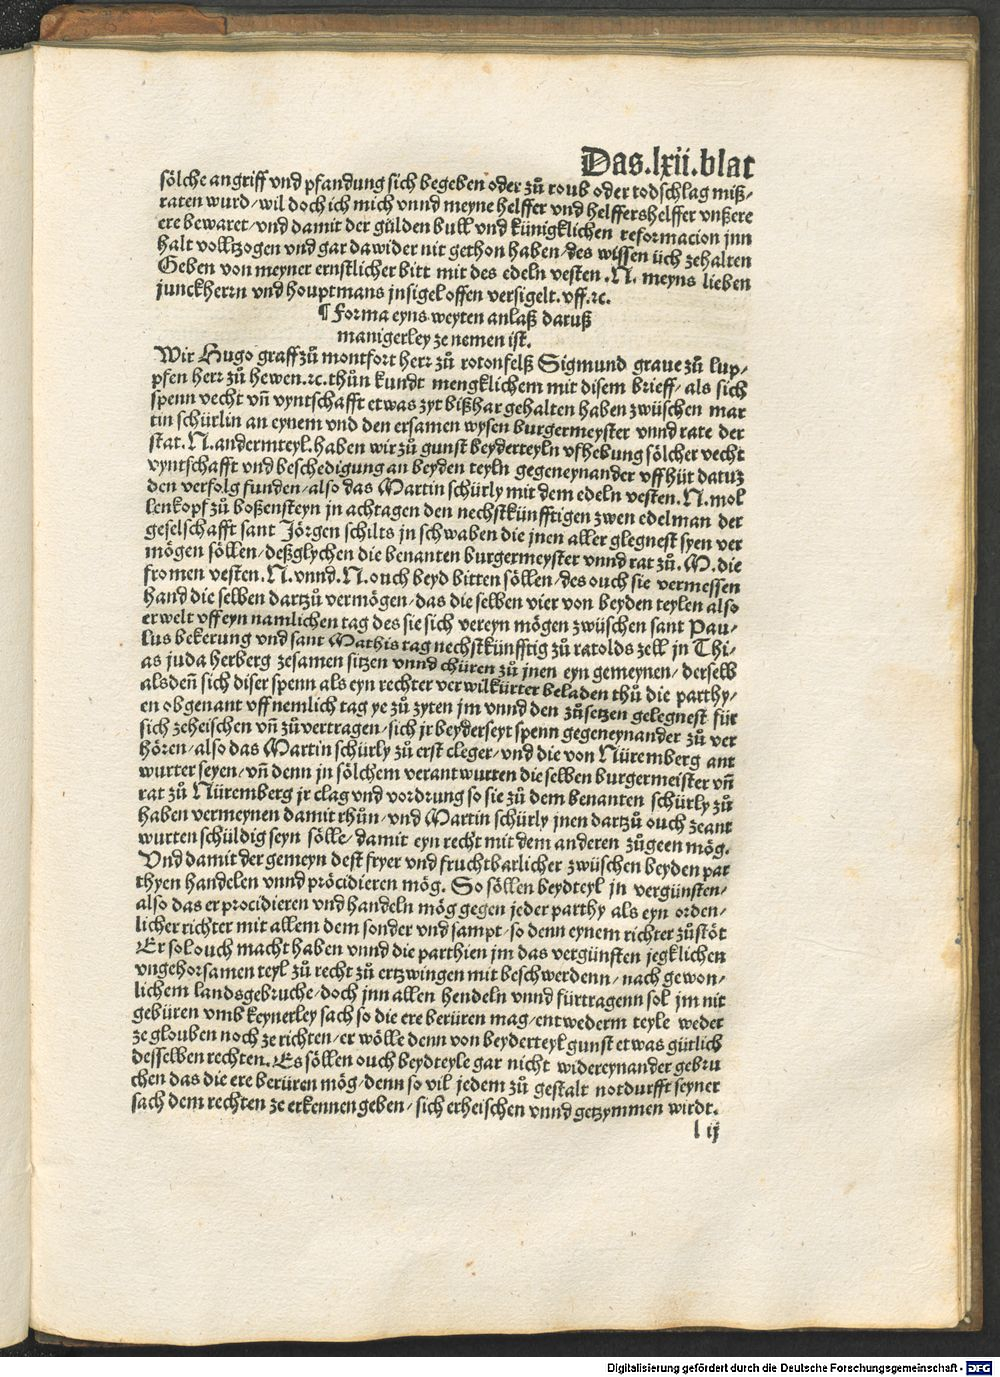 Das.lxii.blat
sölche angriff vnd pfandung sich begeben oder zů roub oder todschlag miß⸗
raten wurd/wil doch ich mich vnnd meyne helffer vnd helffershelffer vnßere
ere bewaret/vnd damit der gülden bull vnd künigklichen reformacion jnn
halt volltzogen vnd gar dawider nit gethon haben/des wissen üch zehalten
Geben von meyner ernstlicher bitt mit des edeln vesten .N. meyns lieben
junckherrn vnd houptmans jnsigel offen versigelt.vff.⁊c.
¶ Forma eyns weyten anlaß daruß
manigerley ze nemen ist.
Wir Hugo graff zů montfort herr zů rotonfelß Sigmund graue zů lup⸗
pfen herr zů hewen.⁊c.thůn kundt mengklichem mit disem brieff/als sich
spenn vecht vñ vyntschafft etwas zyt bißhar gehalten haben zwüschen mar
tin schürlin an eynem vnd den ersamen wysen burgermeyster vnnd rate der
stat.N.andermteyl.haben wir zů gunst beyderteyln vfhebung sölcher vecht
vyntschafft vnd beschedigung an beyden teyln gegeneynander vff hüt datuz
den verfolg funden/also das Martin schürly mit dem edeln vesten.N.mol
lenkopf zů boßensteyn jn achtagen den nechstkünfftigen zwen edelman der
geselschafft sant Jörgen schilts jn schwaben die jnen aller glegnest syen ver
mögen söllen/deßglychen die benanten burgermeyster vnnd rat zů.M.die
fromen vesten.N.vnnd.N.ouch beyd bitten söllen/des ouch sie vermessen
hand die selben dartzů vermögen/das die selben vier von beyden teylen also
erwelt vff eyn namlichen tag des sie sich vereyn mögen zwüschen sant Pau⸗
lus bekerung vnd sant Mathis tag nechstkünfftig zů ratolds zell jn Thi⸗
as juda herberg zesamen sitzen vnnd chüren zů jnen eyn gemeynen/derselb
alsdeñ sich diser spenn als eyn rechter verwilkürter beladen thů die parthy⸗
en obgenant vff nemlich tag ye zů zyten jm vnnd den zůsetzen gelegnest für
sich zeheischen vñ zů vertragen/sich jr beyderseyt spenn gegeneynander zů ver
hören/also das Martin schürly zů erst cleger/vnd die von Nüremberg ant
wurter seyen/vñ denn jn sölchem verantwurten die selben burgermeister vñ
rat zů Nüremberg jr clag vnd vordrung so sie zů dem benanten schürly zů
haben vermeynen damit thůn/vnd Martin schürly jnen dartzů ouch zeant
wurten schüldig seyn sölle/damit eyn recht mit dem anderen zůgeen mög.
Vnd damit der gemeyn dest fryer vnd fruchtbarlicher zwüschen beyden par
thyen handelen vnnd pröcidieren mög. So söllen beydteyl jn vergünsten/
also das er procidieren vnd handeln mög gegen jeder parthy als eyn orden⸗
licher richter mit allem dem sonder vnd sampt/so denn eynem richter zůstöt
Er sol ouch macht haben vnnd die parthien jm das vergünsten jegklichen
vngehorsamen teyl zů recht zů ertzwingen mit beschwerdenn/nach gewon⸗
lichem landsgebruche/doch jnn allen hendeln vnnd fürtragenn sol jm nit
gebüren vmb keynerley sach so die ere berüren mag/entwederm teyle weder
ze glouben noch ze richten/er wölle denn von beyderteyl gunst etwas gütlich
desselben rechten. Es söllen ouch beydteyle gar nicht widereynander gebru
chen das die ere berüren mög/denn so vil jedem zů gestalt notdurfft seyner
sach dem rechten ze erkennen geben/sich erheischen vnnd getzymmen wirdt.
l ij
Digitalisierung gefördert durch die Deutsche Forschungsgemeinschaft - DFG